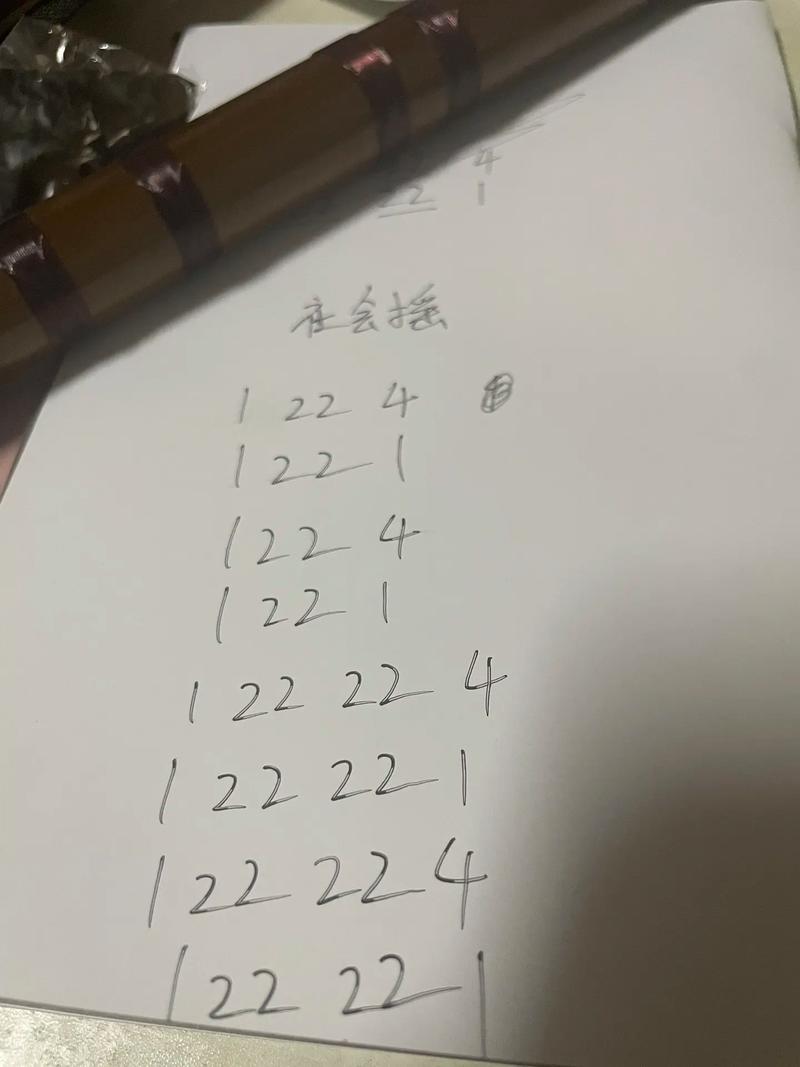 4
22 1
社会摇
1 22 4
1 22 1
1 22 4
1 22 1
1 22 22 4
1 22 22 1
1 22 22 4
1 22 22 1